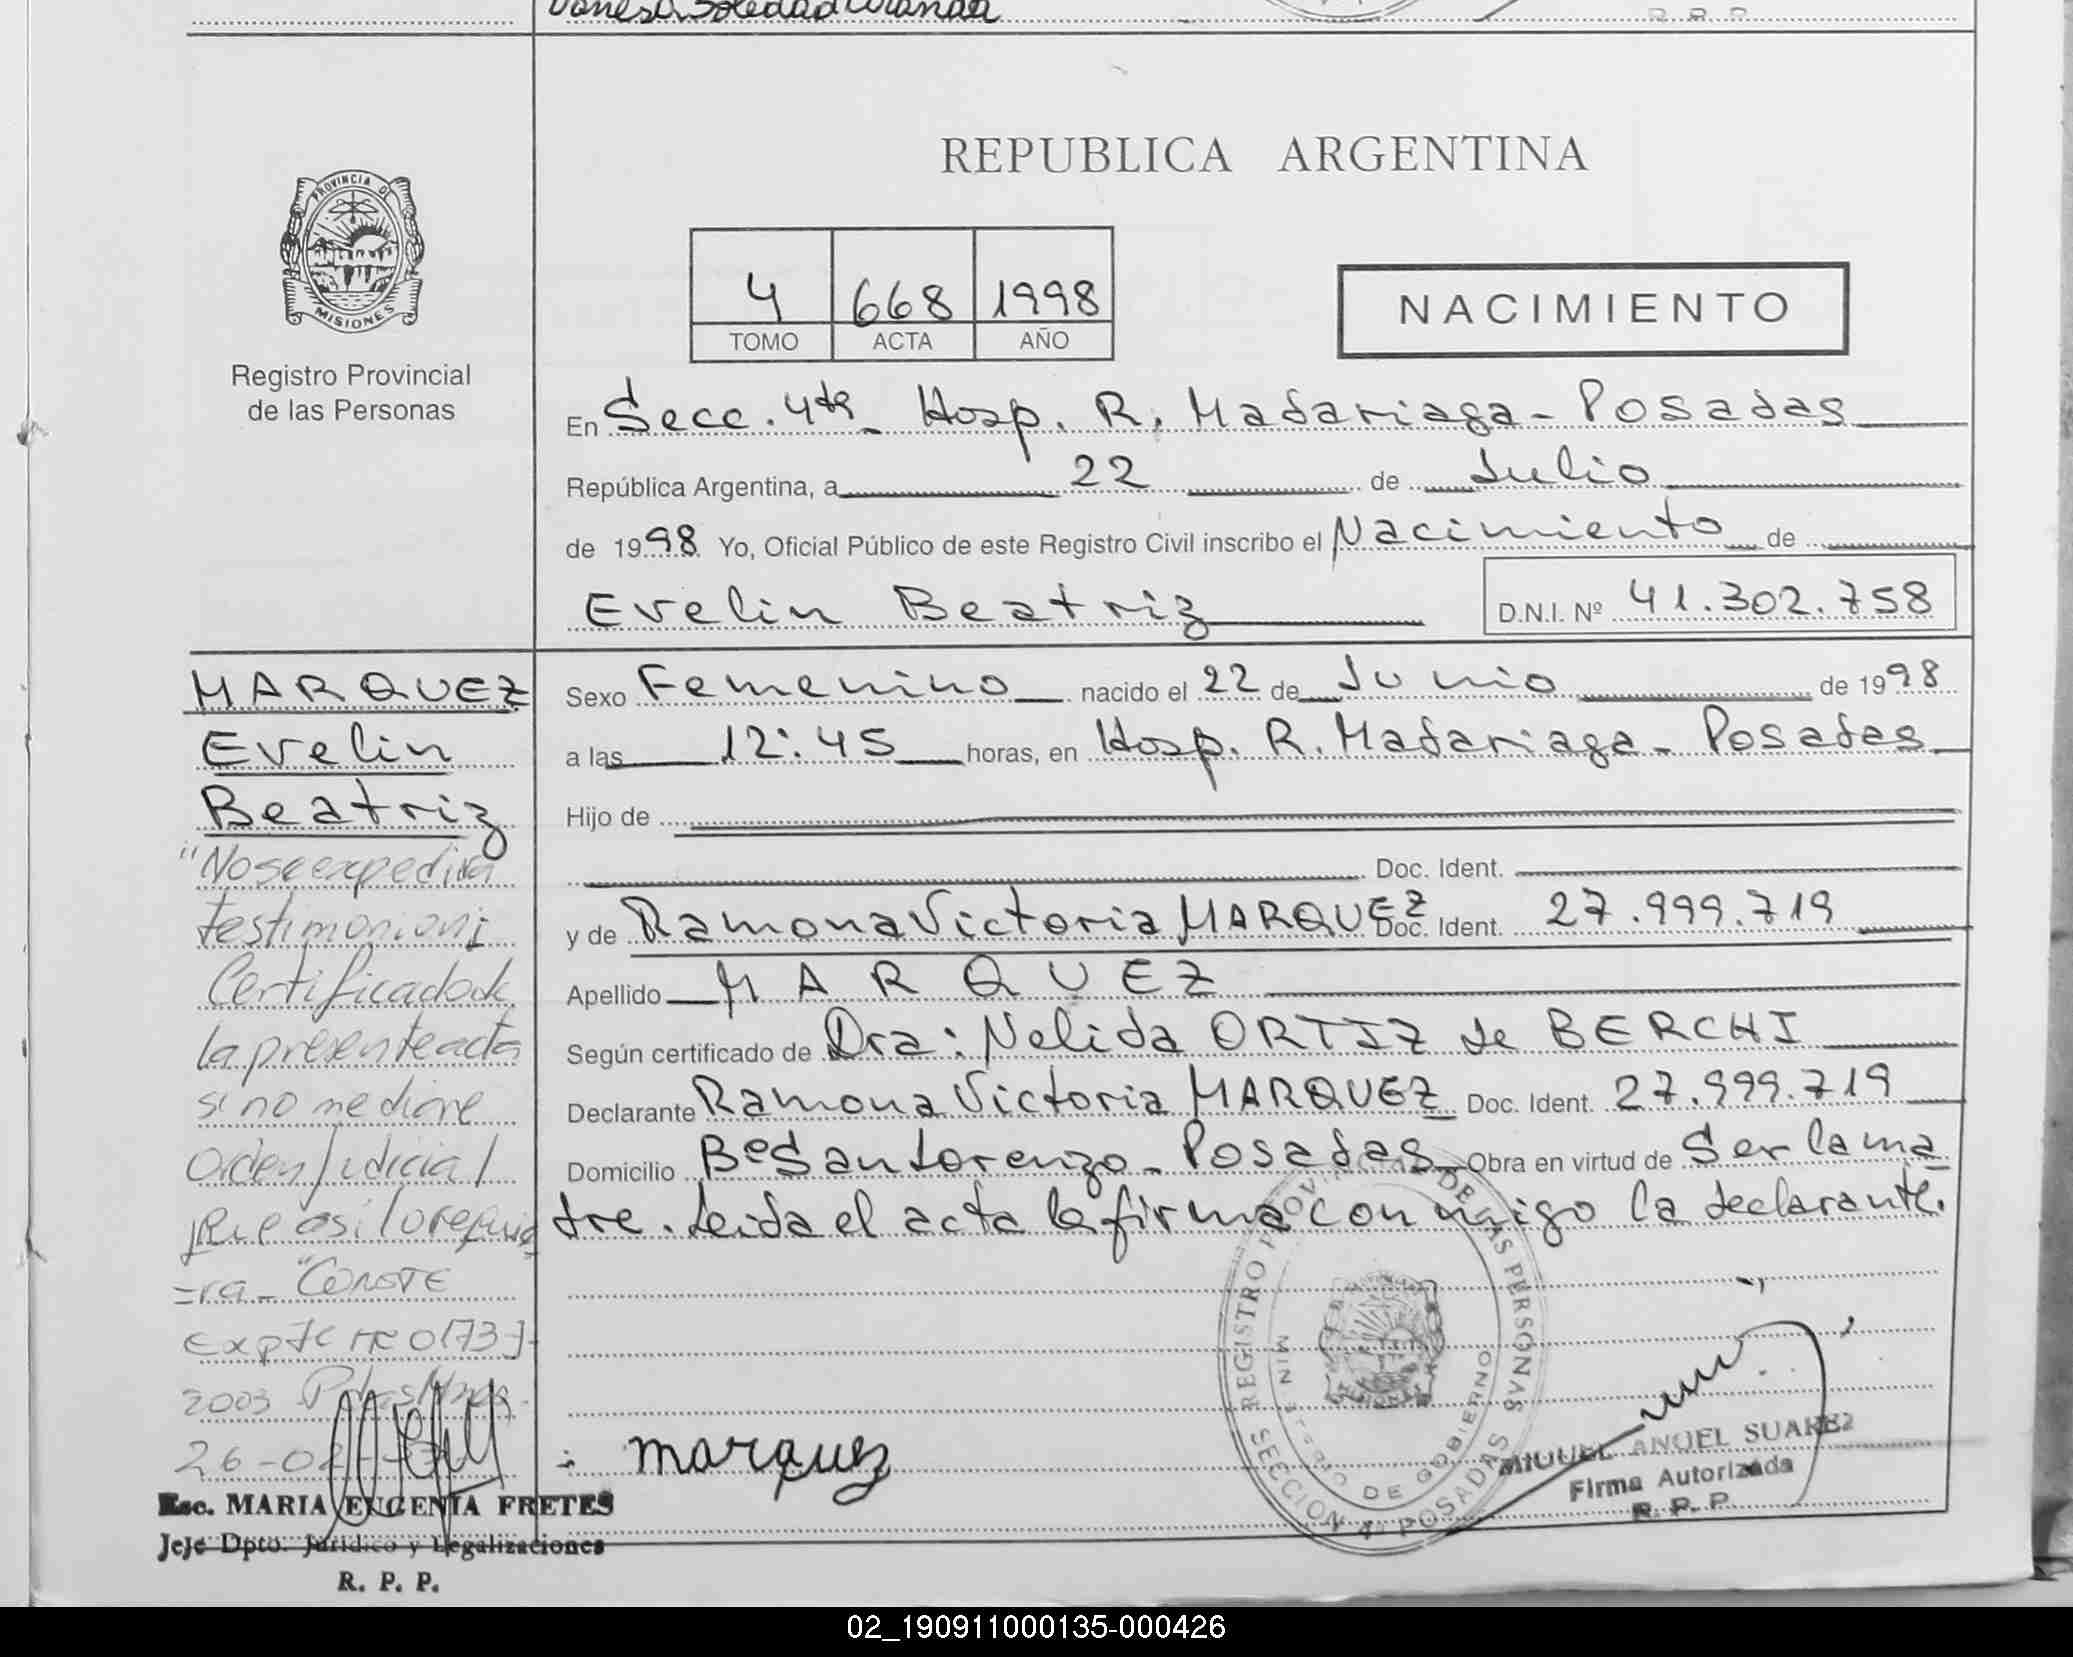 Vanesa Soledad Miranda
R. P. P.
PROVINCIA D
MISIONES
Registro Provincial
de las Personas
REPUBLICA ARGENTINA
4 668 1998
TOMO ACTA AÑO
NACIMIENTO
En Secc. 4ta Hosp. R. Madariaga - Posadas
República Argentina, a 22 de Julio
de 1998 Yo, Oficial Público de este Registro Civil inscribo el Nacimiento de
Evelin Beatriz D.N.I. Nº 41.302.758
MARQUEZ
Evelin
Beatriz
"No se expedira
testimonio ni
Certificado de
la presente acta
si no mediare
Orden Judicial
que asi lo requie
=ra_ "CONSTE
2003
Esc. MARIA EUGENIA FRETES
Jefe Dpto. Jurídico y Legalizaciones
R. P. P.
Sexo Femenino nacido el 22 de Junio de 1998
a las 12:45 horas, en Hosp. R. Madariaga - Posadas
Hijo de
Doc. Ident.
y de Ramona Victoria MARQUEZ Doc. Ident. 27.999.719
Apellido MARQUEZ
Según certificado de Dra: Nelida ORTIZ de BERCHI
Declarante Ramona Victoria MARQUEZ Doc. Ident. 27.999.719
Domicilio Bº San Lorenzo - Posadas Obra en virtud de Ser la ma
dre. Leida el acta la firma conmigo la declarante.
marquez
REGISTRO PROVINCIAL DE LAS PERSONAS
MINISTERIO DE GOBIERNO
SECCION 4ª POSADAS
MIGUEL ANGEL SUAREZ
Firma Autorizada
R. P. P.
02_190911000135-000426